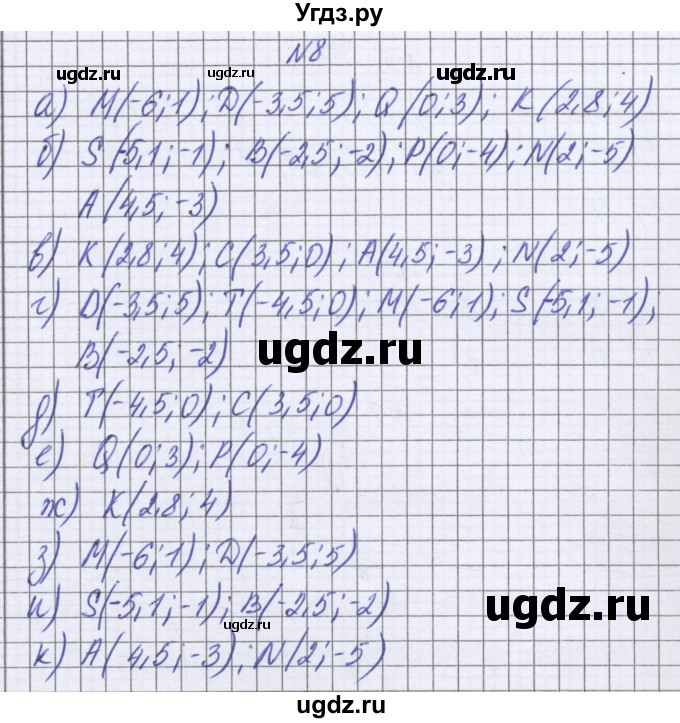 Угдз.ру
N8
ugdz.ru ugdz.ru ugdz.ru
а) M(-6;1); D(-3,5;5); Q(0;3); K(2,8;4)
б) S(-5,1;-1); B(-2,5;-2); P(0;-4); N(2;-5)
A(4,5;-3)
в) K(2,8;4); C(3,5;0); A(4,5;-3); N(2;-5)
г) D(-3,5;5); T(-4,5;0); M(-6;1); S(-5,1;-1);
B(-2,5;-2)
ugdz.ru
д) T(-4,5;0); C(3,5;0)
е) Q(0;3); P(0;-4)
ж) K(2,8;4)
з) M(-6;1); D(-3,5;5)
и) S(-5,1;-1); B(-2,5;-2)
ugdz.ru
ugdz.ru
к) A(4,5;-3); N(2;-5)
ugdz.ru